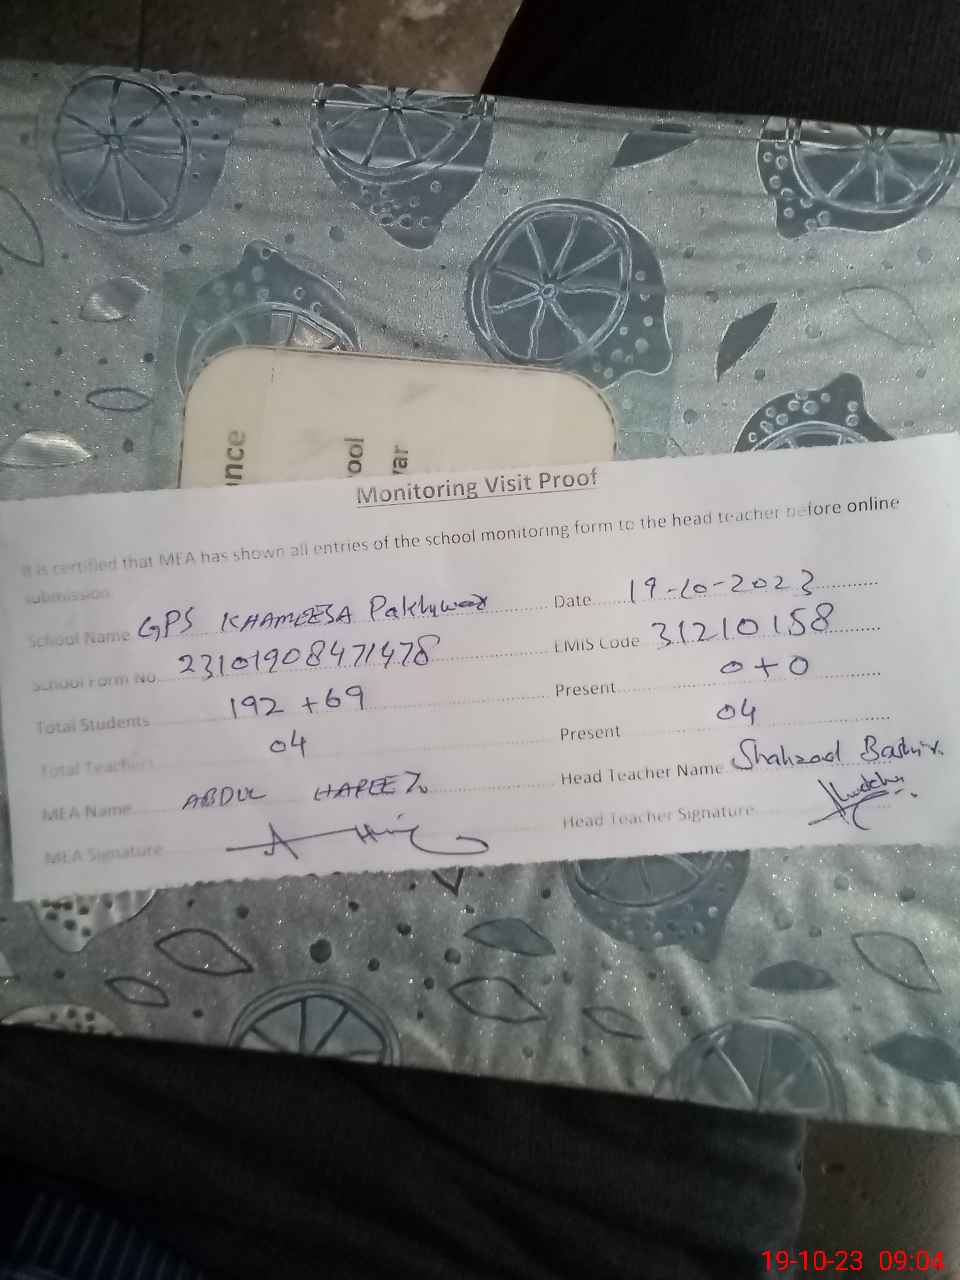 nce
ool
var
Monitoring Visit Proof
It is certified that MEA has shown all entries of the school monitoring form to the head teacher before online
submission.
School Name GPS KHAMEESA Pakhywar Date 19-10-2023
School Form No. 23101908471478 EMIS Code 31210158
Total Students 192 + 69 Present 0+0
Total Teachers 04 Present 04
MEA Name ABDUL HAFEEZ Head Teacher Name Shahzad Bashir
MEA Signature Head Teacher Signature
19-10-23 09:04